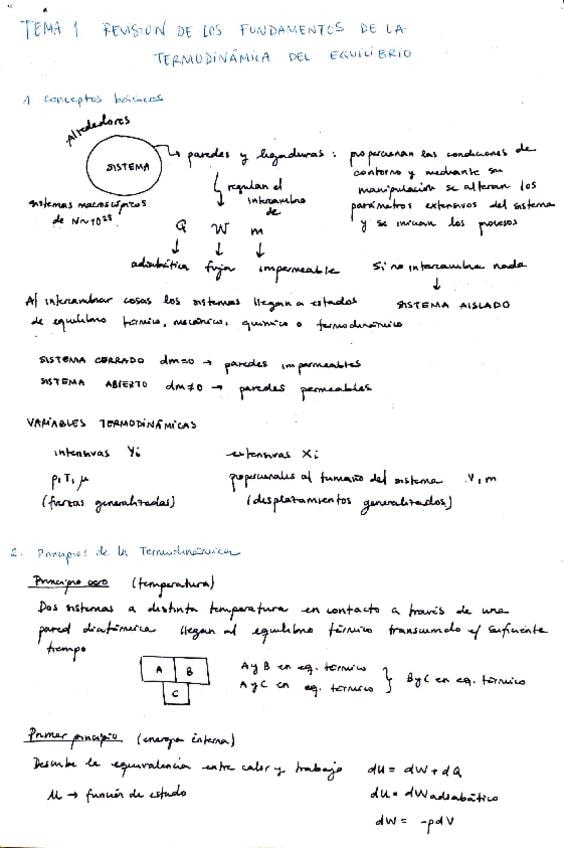 TEMA 1 REVISIÓN DE LOS FUNDAMENTOS DE LA
TERMODINÁMICA DEL EQUILIBRIO
1 Conceptos básicos
Alrededores
SISTEMA
paredes y ligaduras : proporcionan las condiciones de
contorno y mediante su
manipulación se alteran los
parámetros extensivos del sistema
y se inician los procesos
regulan el
intercambio
de
sistemas macroscópicos
de N~10²³
Q W m
↓ ↓ ↓
adiabática fija impermeable
Si no intercambia nada
↓
SISTEMA AISLADO
Al intercambiar cosas los sistemas llegan a estados
de equilibrio térmico, mecánico, químico o termodinámico
SISTEMA CERRADO dm=0 → paredes impermeables
SISTEMA ABIERTO dm≠0 → paredes permeables
VARIABLES TERMODINÁMICAS
intensivas Yi
extensivas Xi
p, T, μ
proporcionales al tamaño del sistema V, m
(fuerzas generalizadas)
(desplazamientos generalizados)
2. Principios de la Termodinámica
Principio cero (temperatura)
Dos sistemas a distinta temperatura en contacto a través de una
pared diatérmica llegan al equilibrio térmico transcurrido suficiente
tiempo
A B
C
A y B en eq. térmico
A y C en eq. térmico
} B y C en eq. térmico
Primer principio (energía interna)
Describe la equivalencia entre calor y trabajo dU = dW + dQ
U → función de estado dU = dWadiabático
dW = -pdV